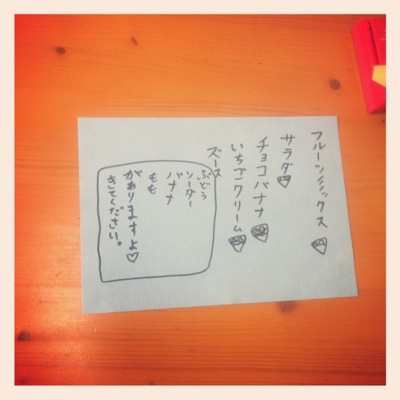 フルーツミックス
サラダ
チョコバナナ
いちごクリーム
ズース
ぶどう
ソーダー
バナナ
もも
がありますよ♡
きてください。